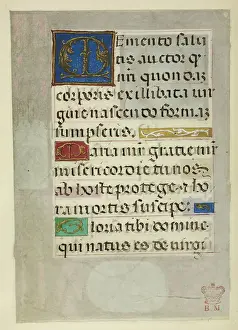 Memento salu
tis auctor q̄
nr̄i quondaz
corporis ex illibata vir
gine nascendo formaz
sumpseris.
Maria mr̄ gratie mr̄
misericordie tu nos
ab hoste protege & ho
ra mortis suscipe:
Gloria tibi domine
qui natus es de virgi
B. M